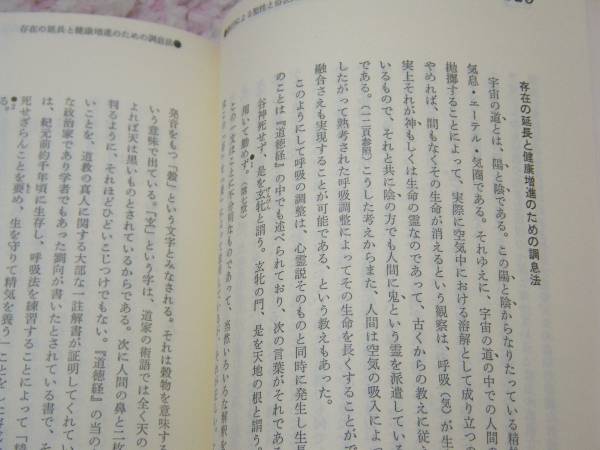 存在の延長と健康増進のための調息法
宇宙の道とは、陽と陰である。この陽と陰からなりたっている精
気息・エーテル・気圏である。それゆえに、宇宙の道の中での人間の
拋擲することによって、実際に空気中における溶解として成り立つの
やめれば、間もなくその生命が消えるという観察は、呼吸（気）が生
実上それが神もしくは生命の霊なのであって、古くからの教えに従え
いるもので、それと共に陰の方でも人間に鬼という霊を派遣している
である。（一二頁参照）こうした考えからまた、人間は空気の吸入によ
したがって熟考された呼吸調整によってその生命を長くすることが
融合さえも実現することが可能である、という教えもあった。
このようにして呼吸の調整は、心霊説そのものと同時に発生し生長
のことは『道徳経』の中でも述べられており、次の言葉がそれであ
谷神死せず、是を玄牝と謂う。玄牝の門、是を天地の根と謂う。
用いて勤めず。（第六章）
この一文はことに不分明なものであって、当然いろいろな解釈を
存在の延長と健康増進のための調息法●
発音をもつ「穀」という文字とみなされる。それは穀物を意味する
いう意味で出ている。「玄」という字は、道家の術語では全く天の
よれば天は黒いものとされているからである。次に人間の鼻と二枚
判るように、それほどひどいこじつけでもない。『道徳経』の当の
いことを、道教の真人に関する大部な一註解書が証明してくれてい
な政治家であり学者でもあった劉向が書いたとされている書で、そ
は、紀元前約千年頃に生存し、呼吸法を練習することによって「
死せざらんことを要め、生を守りて精気を養う」ことを
る。